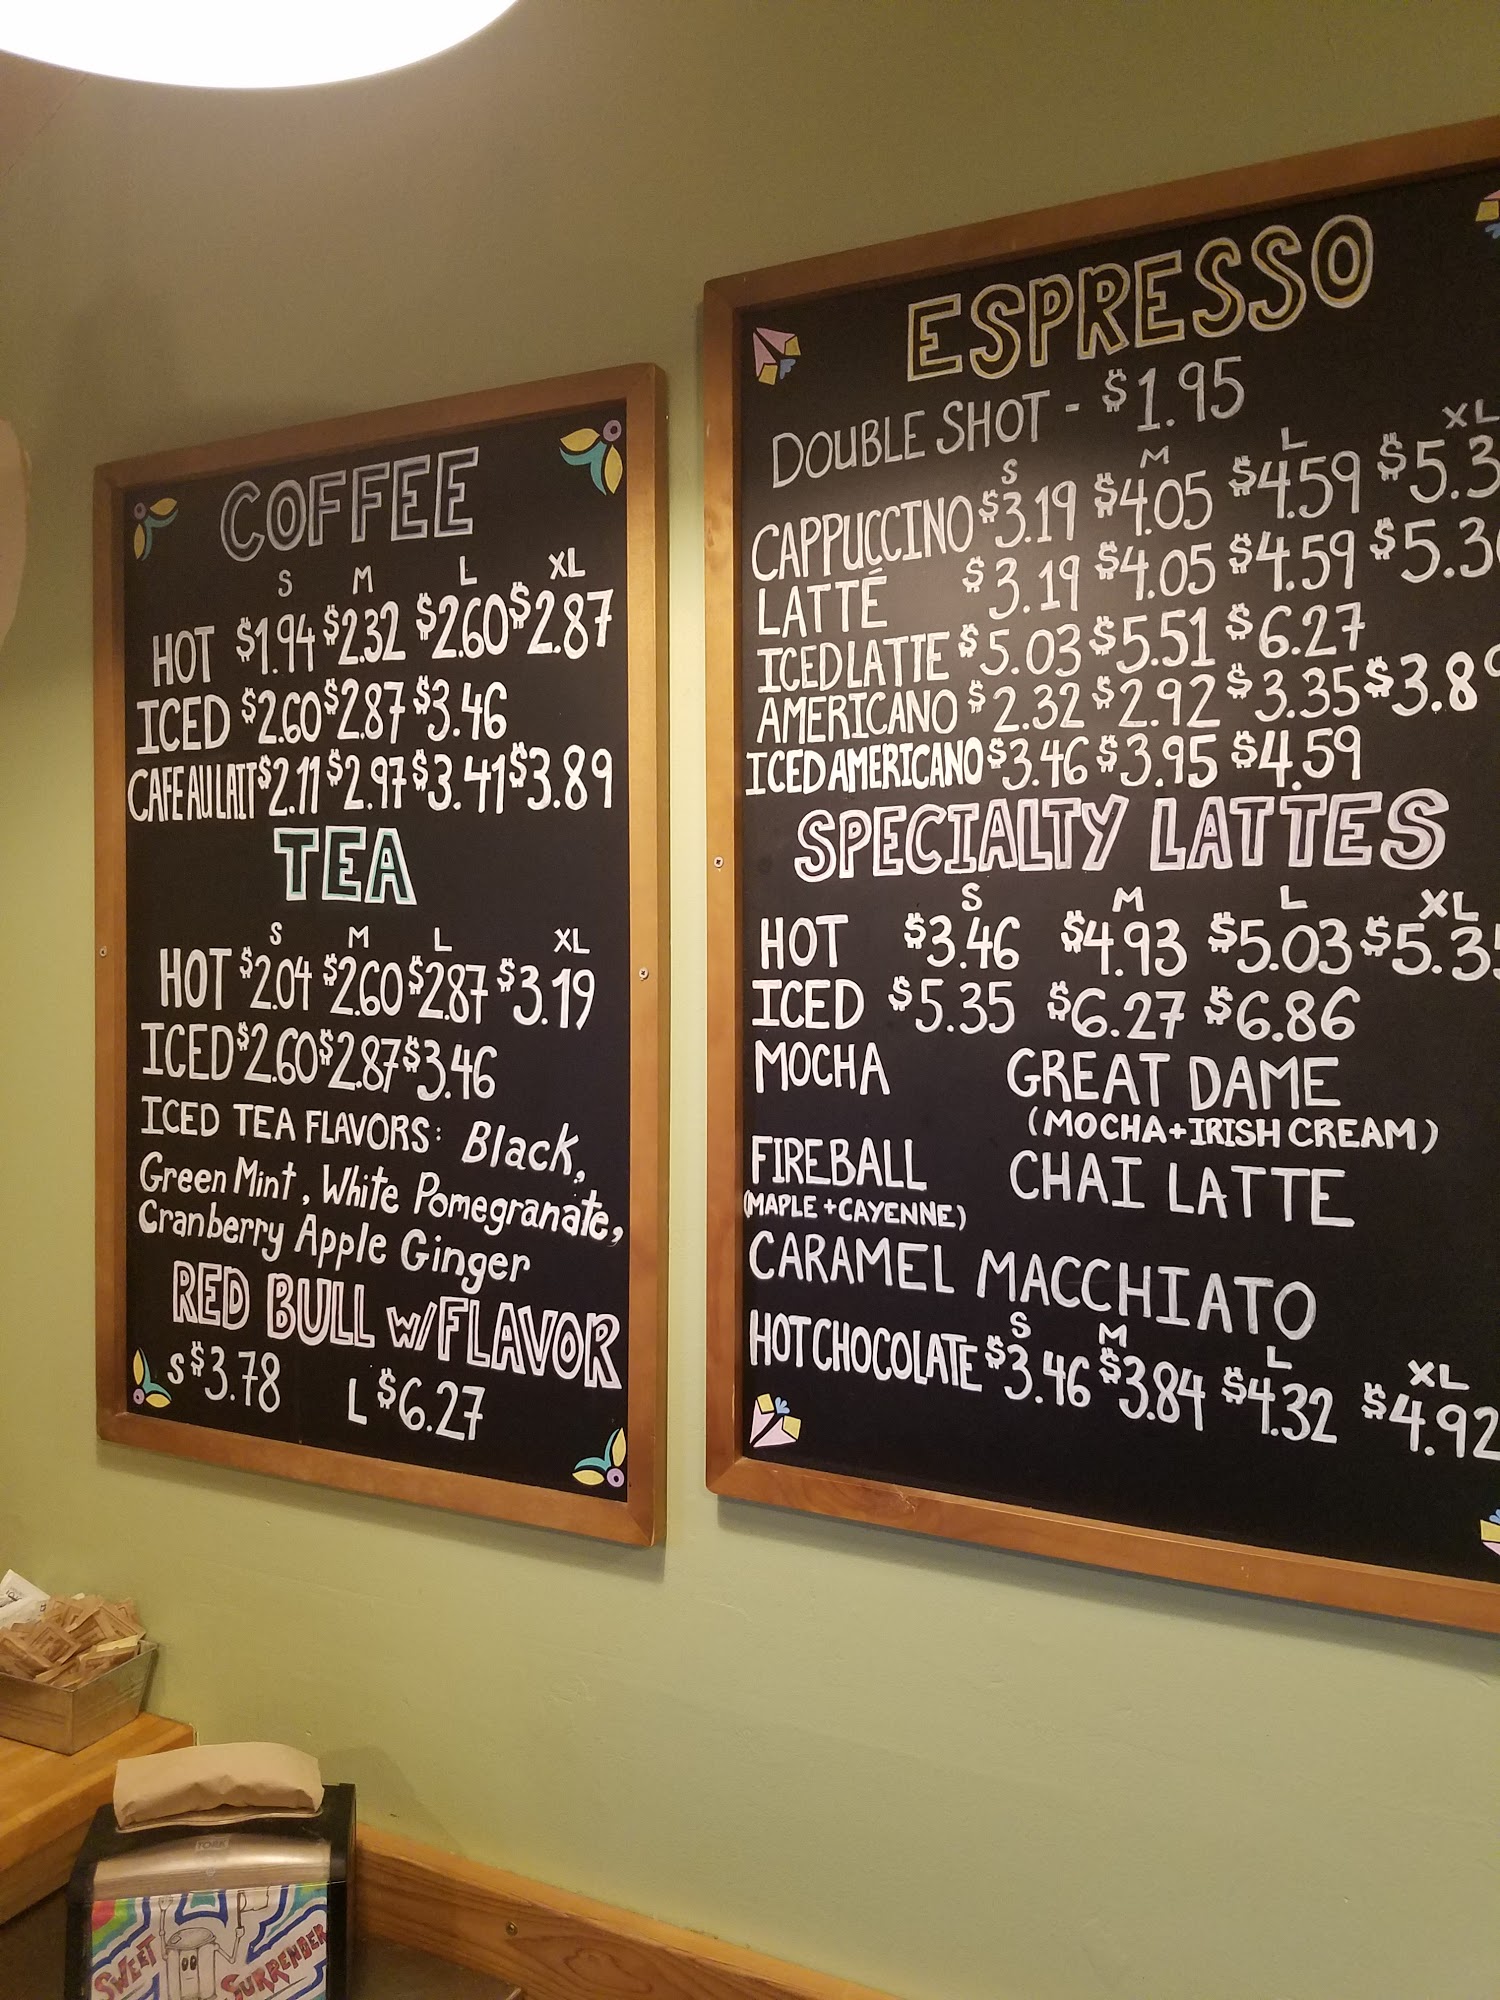 COFFEE
S M L XL
HOT $1.94 $2.32 $2.60 $2.87
ICED $2.60 $2.87 $3.46
CAFE AU LAIT $2.11 $2.97 $3.41 $3.89
TEA
S M L XL
HOT $2.04 $2.60 $2.87 $3.19
ICED $2.60 $2.87 $3.46
ICED TEA FLAVORS: Black,
Green Mint, White Pomegranate,
Cranberry Apple Ginger
RED BULL w/FLAVOR
S $3.78 L $6.27
ESPRESSO
DOUBLE SHOT - $1.95
S M L XL
CAPPUCCINO $3.19 $4.05 $4.59 $5.3
LATTÉ $3.19 $4.05 $4.59 $5.3
ICED LATTE $5.03 $5.51 $6.27
AMERICANO $2.32 $2.92 $3.35 $3.8
ICED AMERICANO $3.46 $3.95 $4.59
SPECIALTY LATTES
S M L XL
HOT $3.46 $4.93 $5.03 $5.3
ICED $5.35 $6.27 $6.86
MOCHA GREAT DAME
(MOCHA+IRISH CREAM)
FIREBALL CHAI LATTE
(MAPLE+CAYENNE)
CARAMEL MACCHIATO
S M L XL
HOT CHOCOLATE $3.46 $3.84 $4.32 $4.92
TORK
SWEET SURRENDER